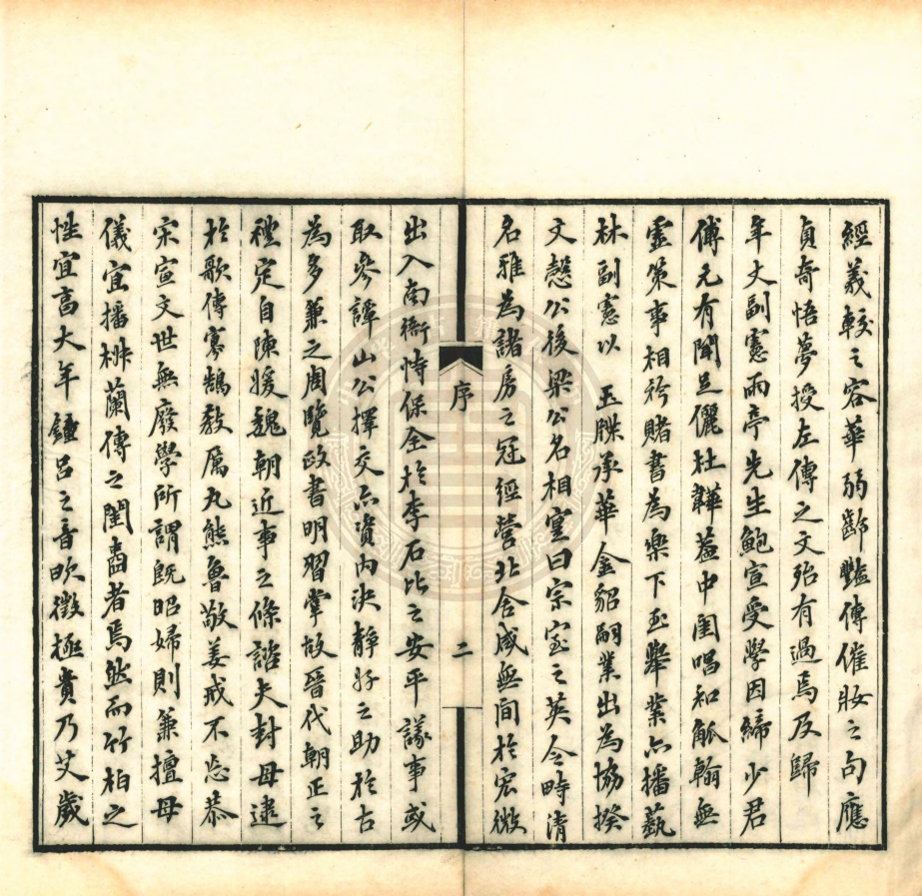 經義較之容華弱齡豔傳催妝之句應
貞奇悟夢授左傳之文殆有過焉及歸
年丈副憲雨亭先生鮑宣受學因締少君
傅元有聞足儷杜韡蓋中閨唱和觚翰無
靈策事相矜賭書為樂下至舉業亦播藝
林副憲以　玉牒承華　金貂嗣業出為協揆
文慤公後梁公名相寔曰宗室之英令時清
名雅為諸房之冠經營北舍咸無間於宏微
序
二
出入南衙恃保全於李石比之安平議事或
取參譚山公擇交亦資內決靜好之助於古
為多兼之周覽政書明習掌故晉代朝正之
禮定自陳媛魏朝近事之條諮夫封母逮
於歌傳寡鵠教厲丸熊魯敬姜戒不忘恭
宋宣文世無廢學所謂既昭婦則兼擅母
儀宜播椒蘭傳之閨壼者焉然而竹柏之
性宜富大年鍾呂之音眇徵極貴乃艾歲